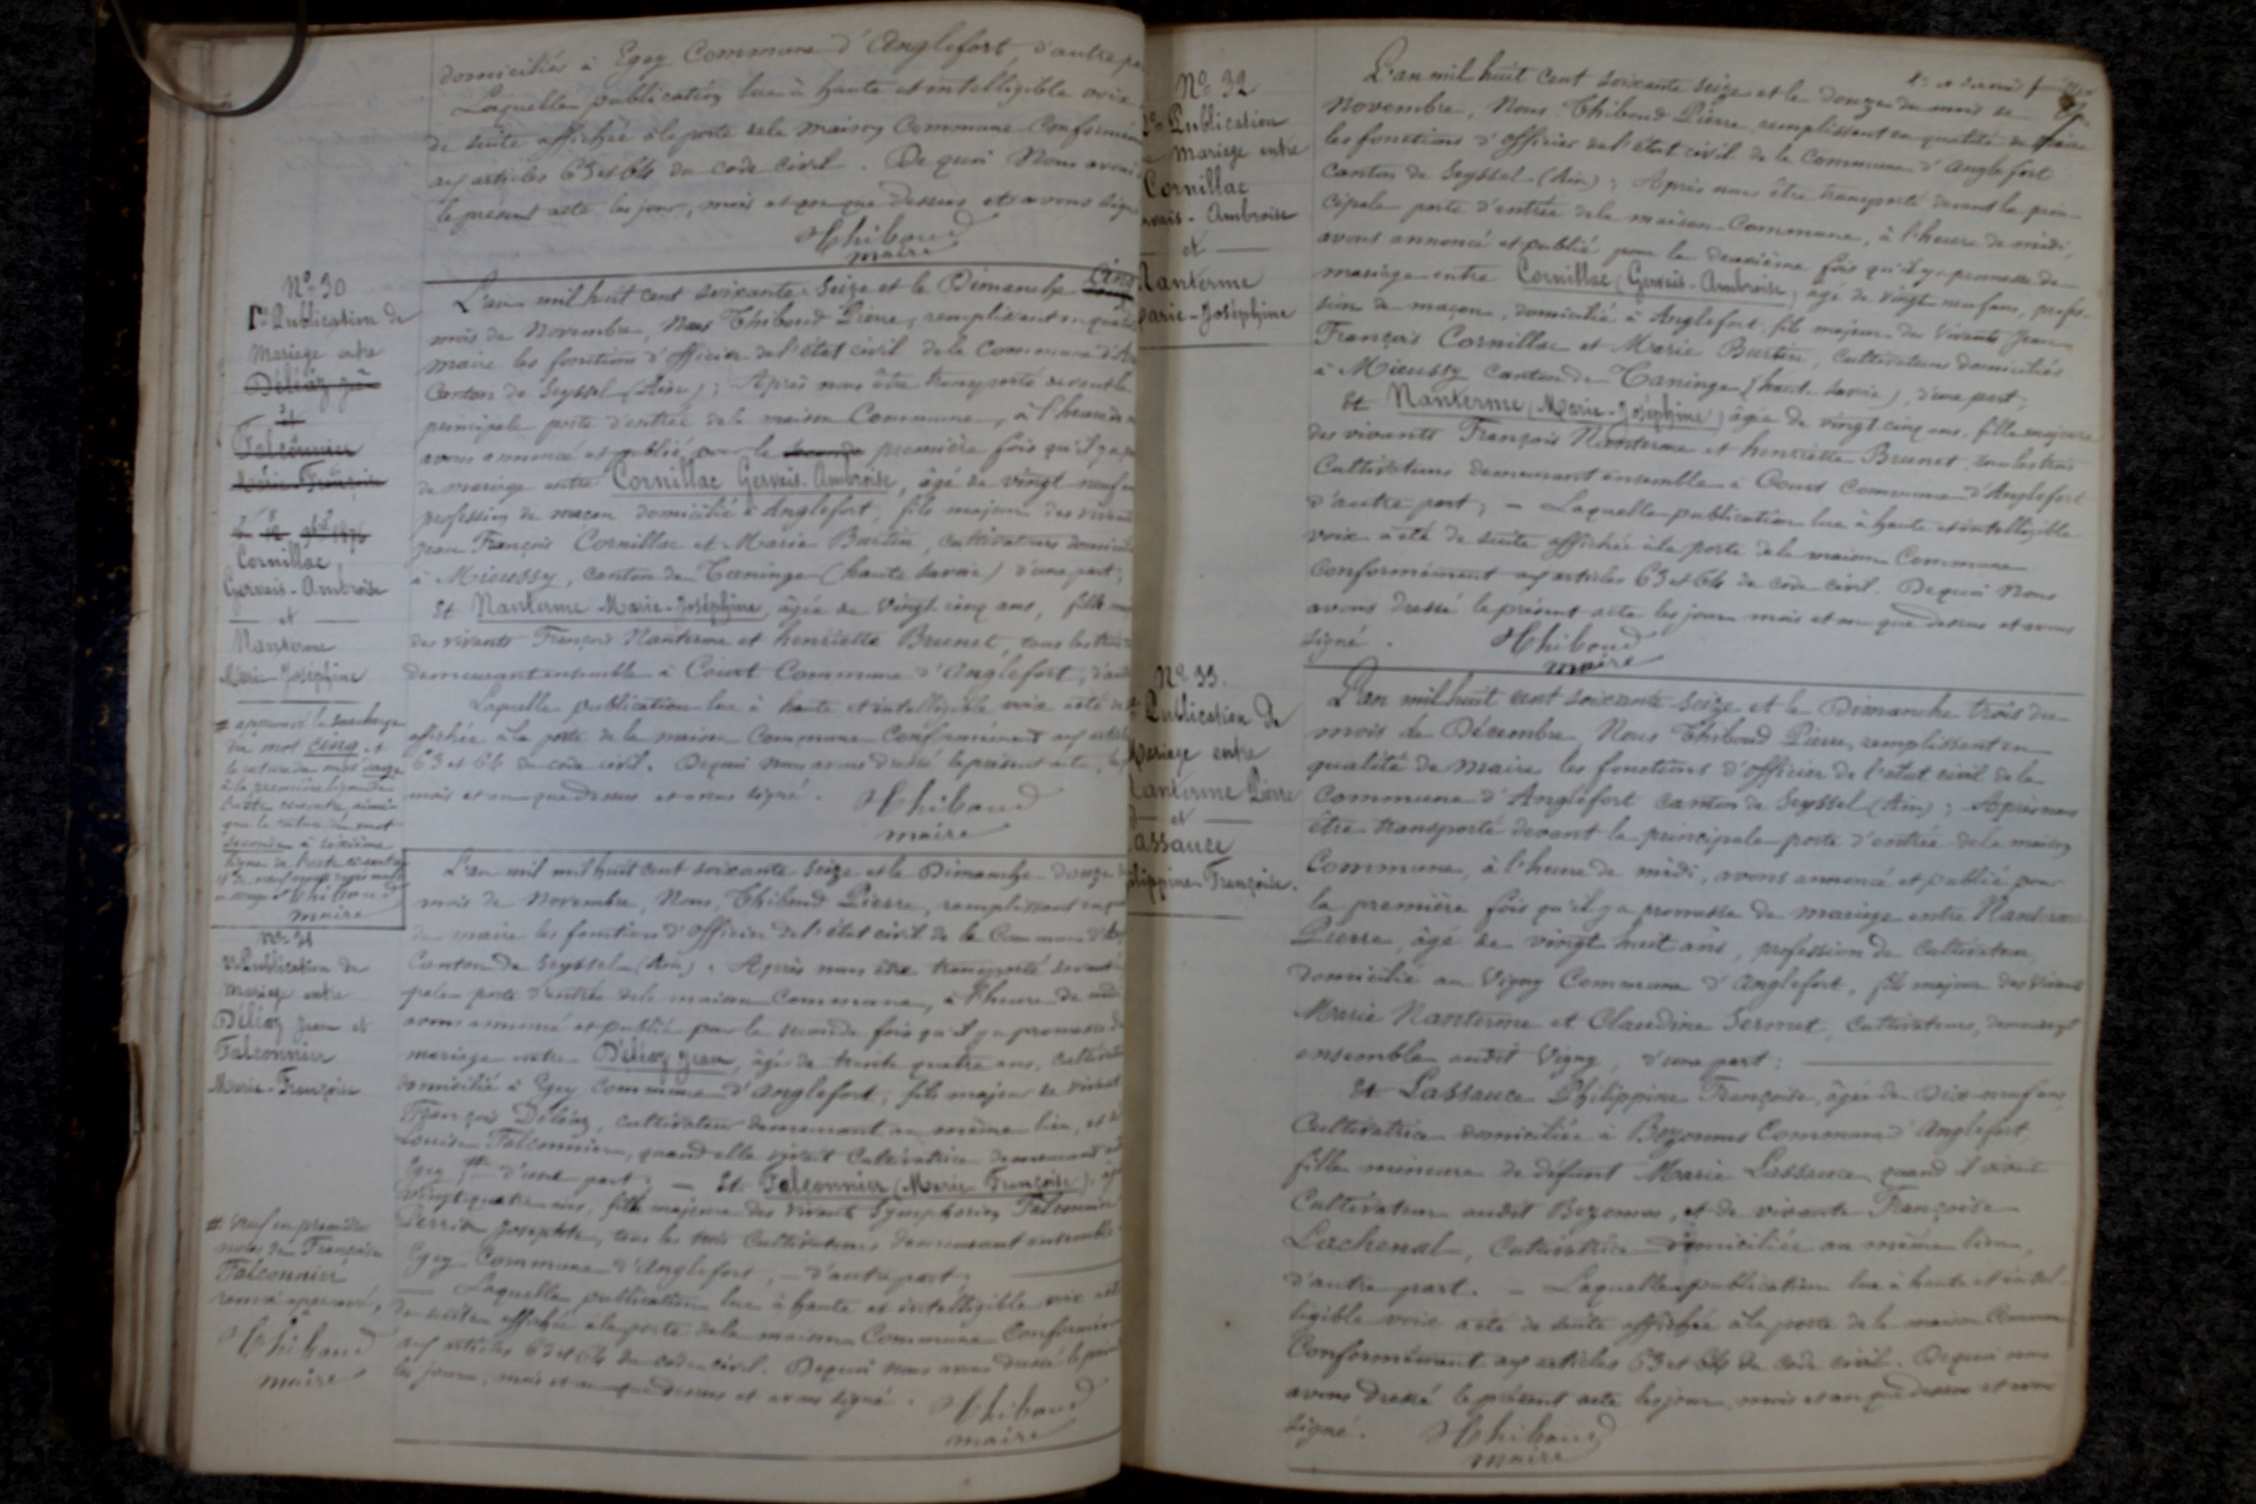 domiciliés à Egey Commune d'Anglefort, d'autre pa
Laquelle publication lue à haute et intelligible voix
de suite affichée à la porte de la maison Commune Conformém
aux articles 63 et 64 du code civil. De quoi Nous avons
le présent acte les jour, mois et an que dessus et avons signé
Thiboud
maire
No 30
1re Publication de
Mariage entre
Déléaz Jean
et
Falconnier
Marie-Françoise
Cornillac
Gervais-Ambroise
et
Nanterme
Marie-Joséphine
# approuvé la surcharge
du mot cinq et
la rature du mot onze
à la première ligne de
l'acte ci-contre ainsi
que la rature du mot
seconde à sixième
ligne de l'acte ci-contre
Thiboud
maire
L'an mil huit cent soixante-seize et le Dimanche cinq
mois de Novembre, Nous Thiboud Pierre, remplissant en qualité
maire les fonctions d'officier de l'état civil de la Commune d'An
Canton de Seyssel (Ain); Après nous être transporté devant la
principale porte d'entrée de la maison Commune, à l'heure de m
avons annoncé et publié pour la seconde première fois qu'il y a p
de mariage entre Cornillac Gervais-Ambroise, âgé de vingt-neuf a
profession de maçon domicilié à Anglefort, fils majeur des vivants
Jean François Cornillac et Marie Burtin, cultivateurs domiciliés
à Mieussy, canton de Taninge (haute Savoie) d'une part;
Et Nanterme Marie-Joséphine, âgée de vingt-cinq ans, fille maj
des vivants François Nanterme et henriette Brunet, tous les trois
demeurant ensemble à Court Commune d'Anglefort, d'aut
Laquelle publication lue à haute et intelligible voix a été de s
affichée à la porte de la maison Commune Conformément aux articles
63 et 64 du code civil. De quoi Nous avons dressé le présent acte, les
mois et an que dessus et avons signé.
Thiboud
maire
No 31
2e Publication de
Mariage entre
Déléaz Jean et
Falconnier
Marie-Françoise
# neuf en première
noces de Françoise
Falconnier
renvoi approuvé,
Thiboud
maire
L'an mil mil huit cent soixante-seize et le Dimanche douze d
mois de Novembre, Nous, Thiboud Pierre, remplissant en qua
de maire les fonctions d'officier de l'état civil de la Commune d'An
Canton de Seyssel (Ain). Après nous être transporté devant
pale porte d'entrée de la maison Commune, à l'heure de midi
avons annoncé et publié pour la seconde fois qu'il y a promesse de
mariage entre Déléaz Jean, âgé de trente quatre ans, cultivat
domicilié à Egey commune d'Anglefort; fils majeur de vivant
François Déléaz, cultivateur demeurant au même lieu, et de
Louise Falconnier, quand elle vivait Cultivatrice demeurant au
Egey # d'une part; — Et Falconnier (Marie Françoise), âg
vingt-quatre ans, fille majeure des vivants Symphorien Falconnier
Perrin Josephte, tous les trois Cultivateurs demeurant ensemble
Egey Commune d'Anglefort, — d'autre part;
— Laquelle publication lue à haute et intelligible voix a été
de suite affichée à la porte de la maison Commune Conformém
aux articles 63 et 64 du code civil. De quoi nous avons dressé le prése
les jours, mois et an que dessus et avons signé.
Thiboud
maire
No 32
2e Publication
de Mariage entre
Cornillac
rvais-Ambroise
et
Nanterme
Marie-Joséphine
L'an mil huit cent soixante-seize et le douze du mois de
Novembre, Nous Thiboud Pierre remplissant en qualité de Maire
les fonctions d'officier de l'état civil de la Commune d'Anglefort
Canton de Seyssel (Ain); Après nous être transporté devant la prin-
cipale porte d'entrée de la maison Commune, à l'heure de midi,
avons annoncé et publié pour la deuxième fois qu'il y a promesse de
mariage entre Cornillac (Gervais-Ambroise) âgé de vingt-neuf ans, profes-
sion de maçon, domicilié à Anglefort, fils majeur des vivants Jean
François Cornillac et Marie Burtin, Cultivateurs domiciliés
à Mieussy canton de Taninge (haute Savoie), d'une part;
Et Nanterme (Marie-Joséphine) âgée de vingt-cinq ans, fille majeure
des vivants François Nanterme et henriette Brunet, tous les trois
Cultivateurs demeurant ensemble à Court Commune d'Anglefort
d'autre part; — Laquelle publication lue à haute et intelligible
voix a été de suite affichée à la porte de la maison Commune
Conformément aux articles 63 et 64 du code civil. De quoi Nous
avons dressé le présent acte les jour mois et an que dessus et avons
signé.
Thiboud
maire
No 33.
Publication de
Mariage entre
Nanterme Pierre
et
Lassauce
ilippine-Françoise.
L'an mil huit cent soixante seize et le Dimanche trois du
mois de Décembre Nous Thiboud Pierre, remplissant en
qualité de Maire les fonctions d'officier de l'état civil de la
Commune d'Anglefort canton de Seyssel (Ain); Après nous
être transporté devant la principale porte d'entrée de la maison
Commune, à l'heure de midi, avons annoncé et publié pour
la première fois qu'il y a promesse de mariage entre Nanterme
Pierre, âgé de vingt huit ans, profession de Cultivateur
domicilié au Vigny Commune d'Anglefort, fils majeur des vivants
Marie Nanterme et Claudine Sermet, Cultivateurs, demeurant
ensemble audit Vigny, d'une part:
Et Lassauce Philippine Françoise, âgée de Dix-neuf ans,
Cultivatrice domiciliée à Bezonnes Commune d'Anglefort,
fille mineure de défunt Marie Lassauce, quand il vivait
Cultivateur audit Bezonnes, et de vivante Françoise
Lachenal, Cultivatrice domiciliée au même lieu,
d'autre part. — Laquelle publication lue à haute et intel-
ligible voix a été de suite affichée à la porte de la maison Commune
Conformément aux articles 63 et 64 du code civil. De quoi nous
avons dressé le présent acte les jour, mois et an que dessus et avons
signé.
Thiboud
maire